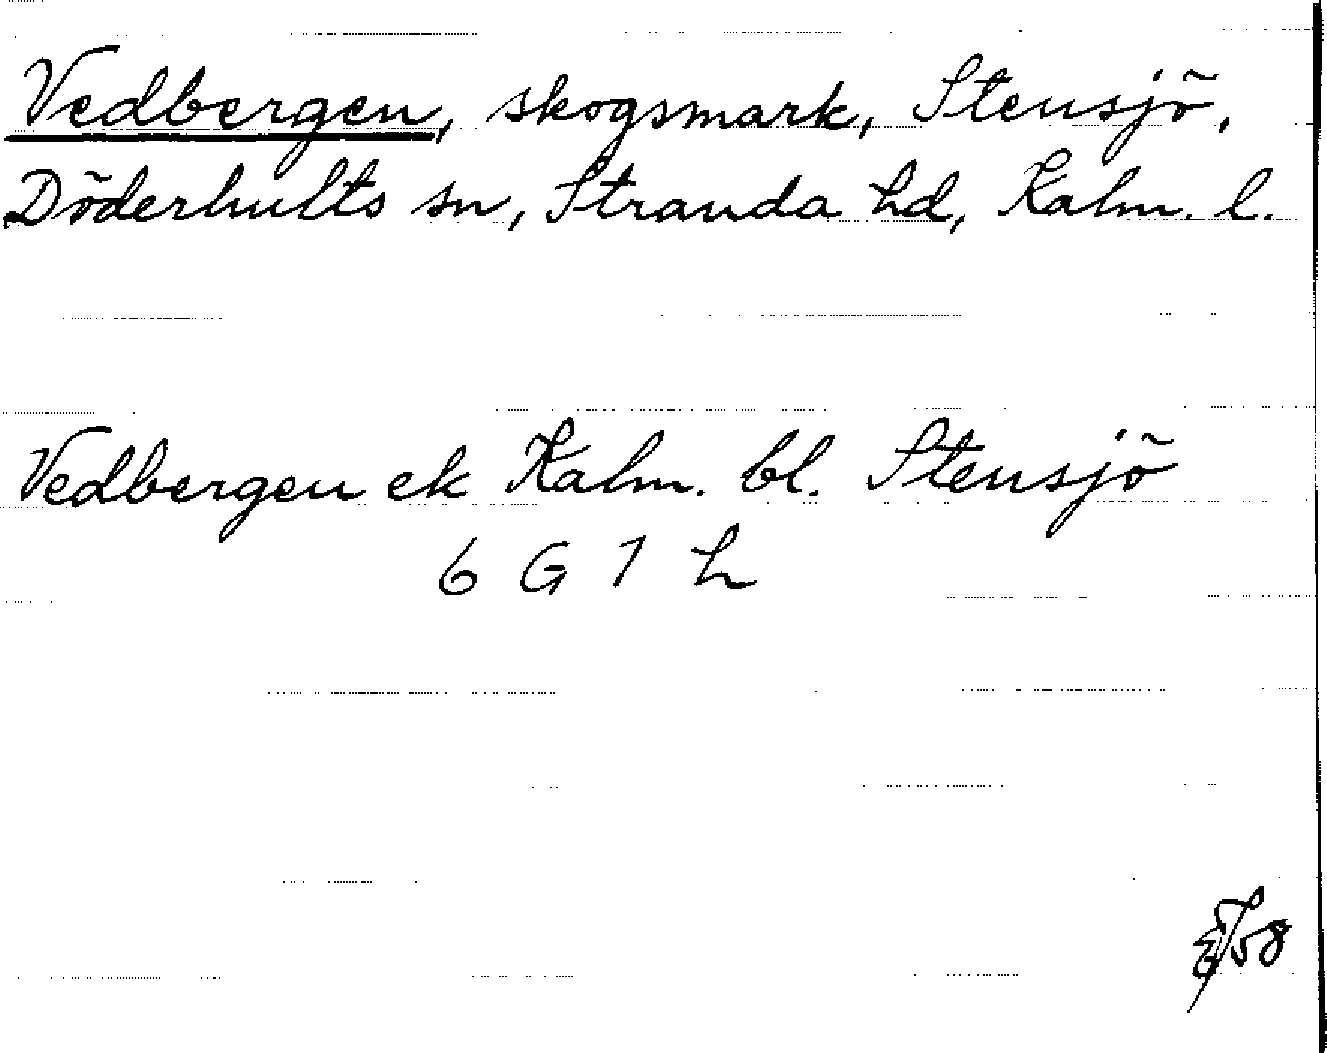 Vedbergen, skogsmark, Stensjö,
Döderhults sn, Stranda hd, Kalm. l.
Vedbergen ek Kalm. bl. Stensjö
6 G 1 h
58